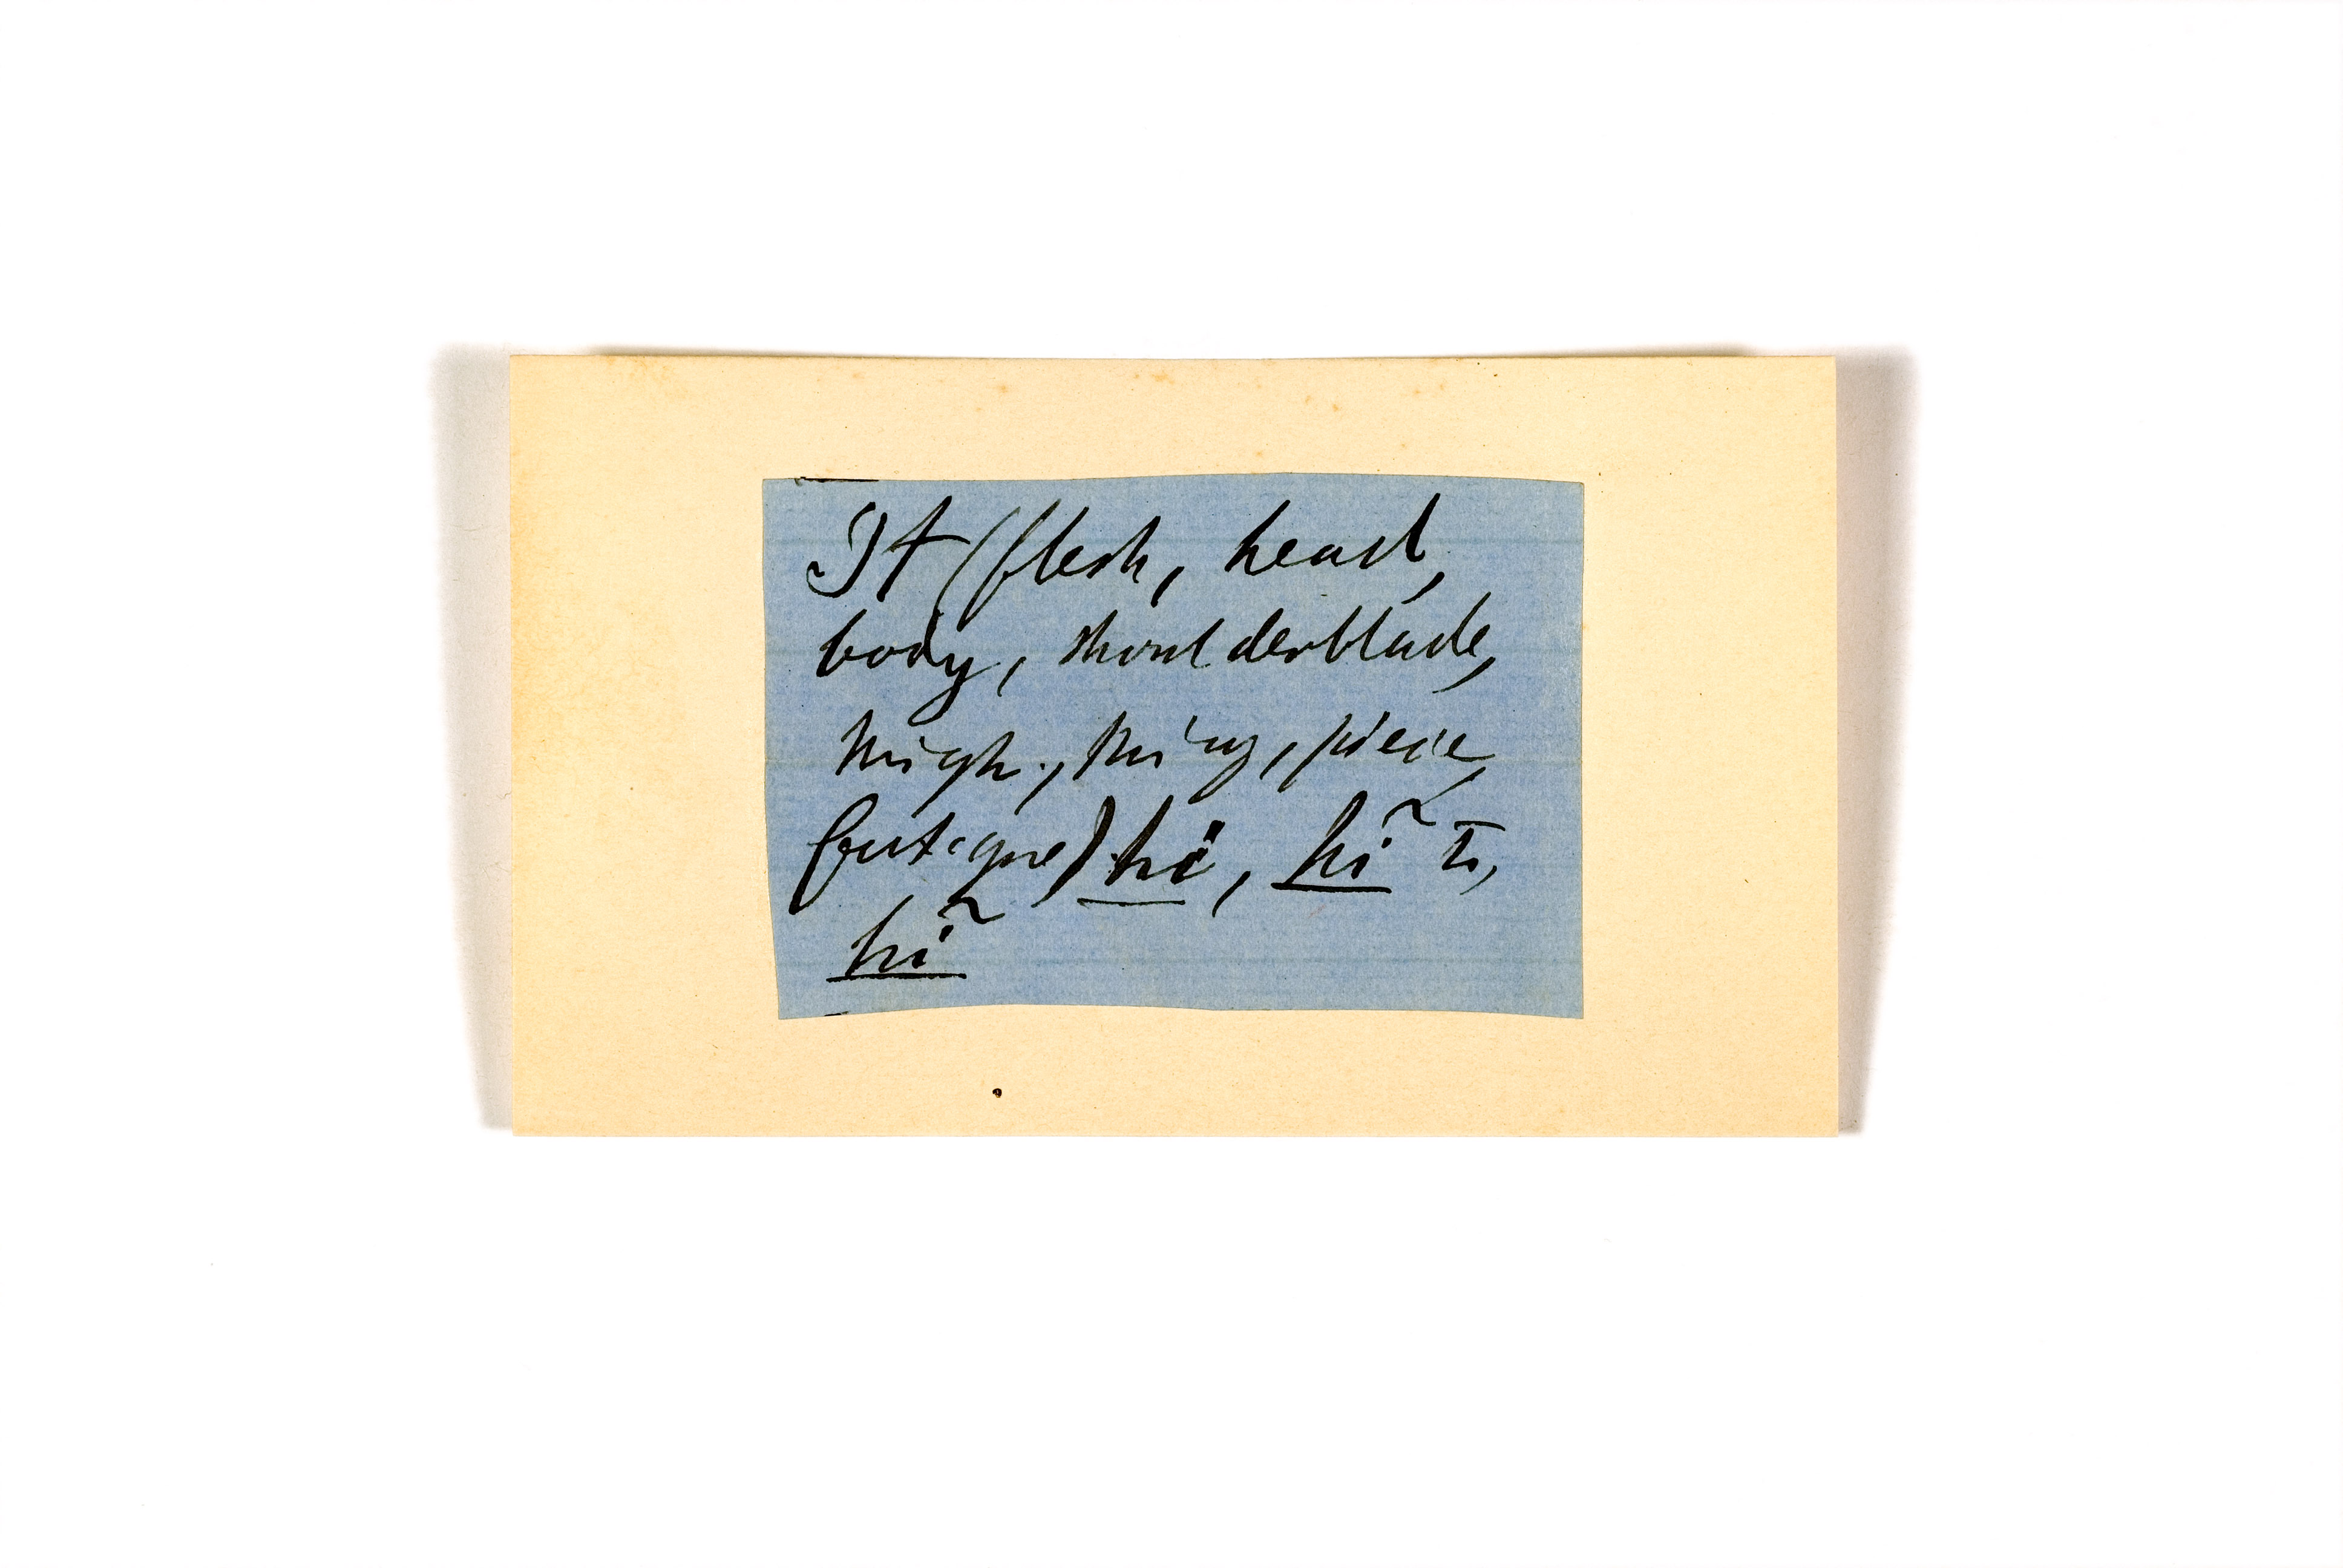 It (flesh, head,
body, shoulderblade,
thigh, thing, piece,
fatigue) hĩ, hĩ ĩ,
hĩ